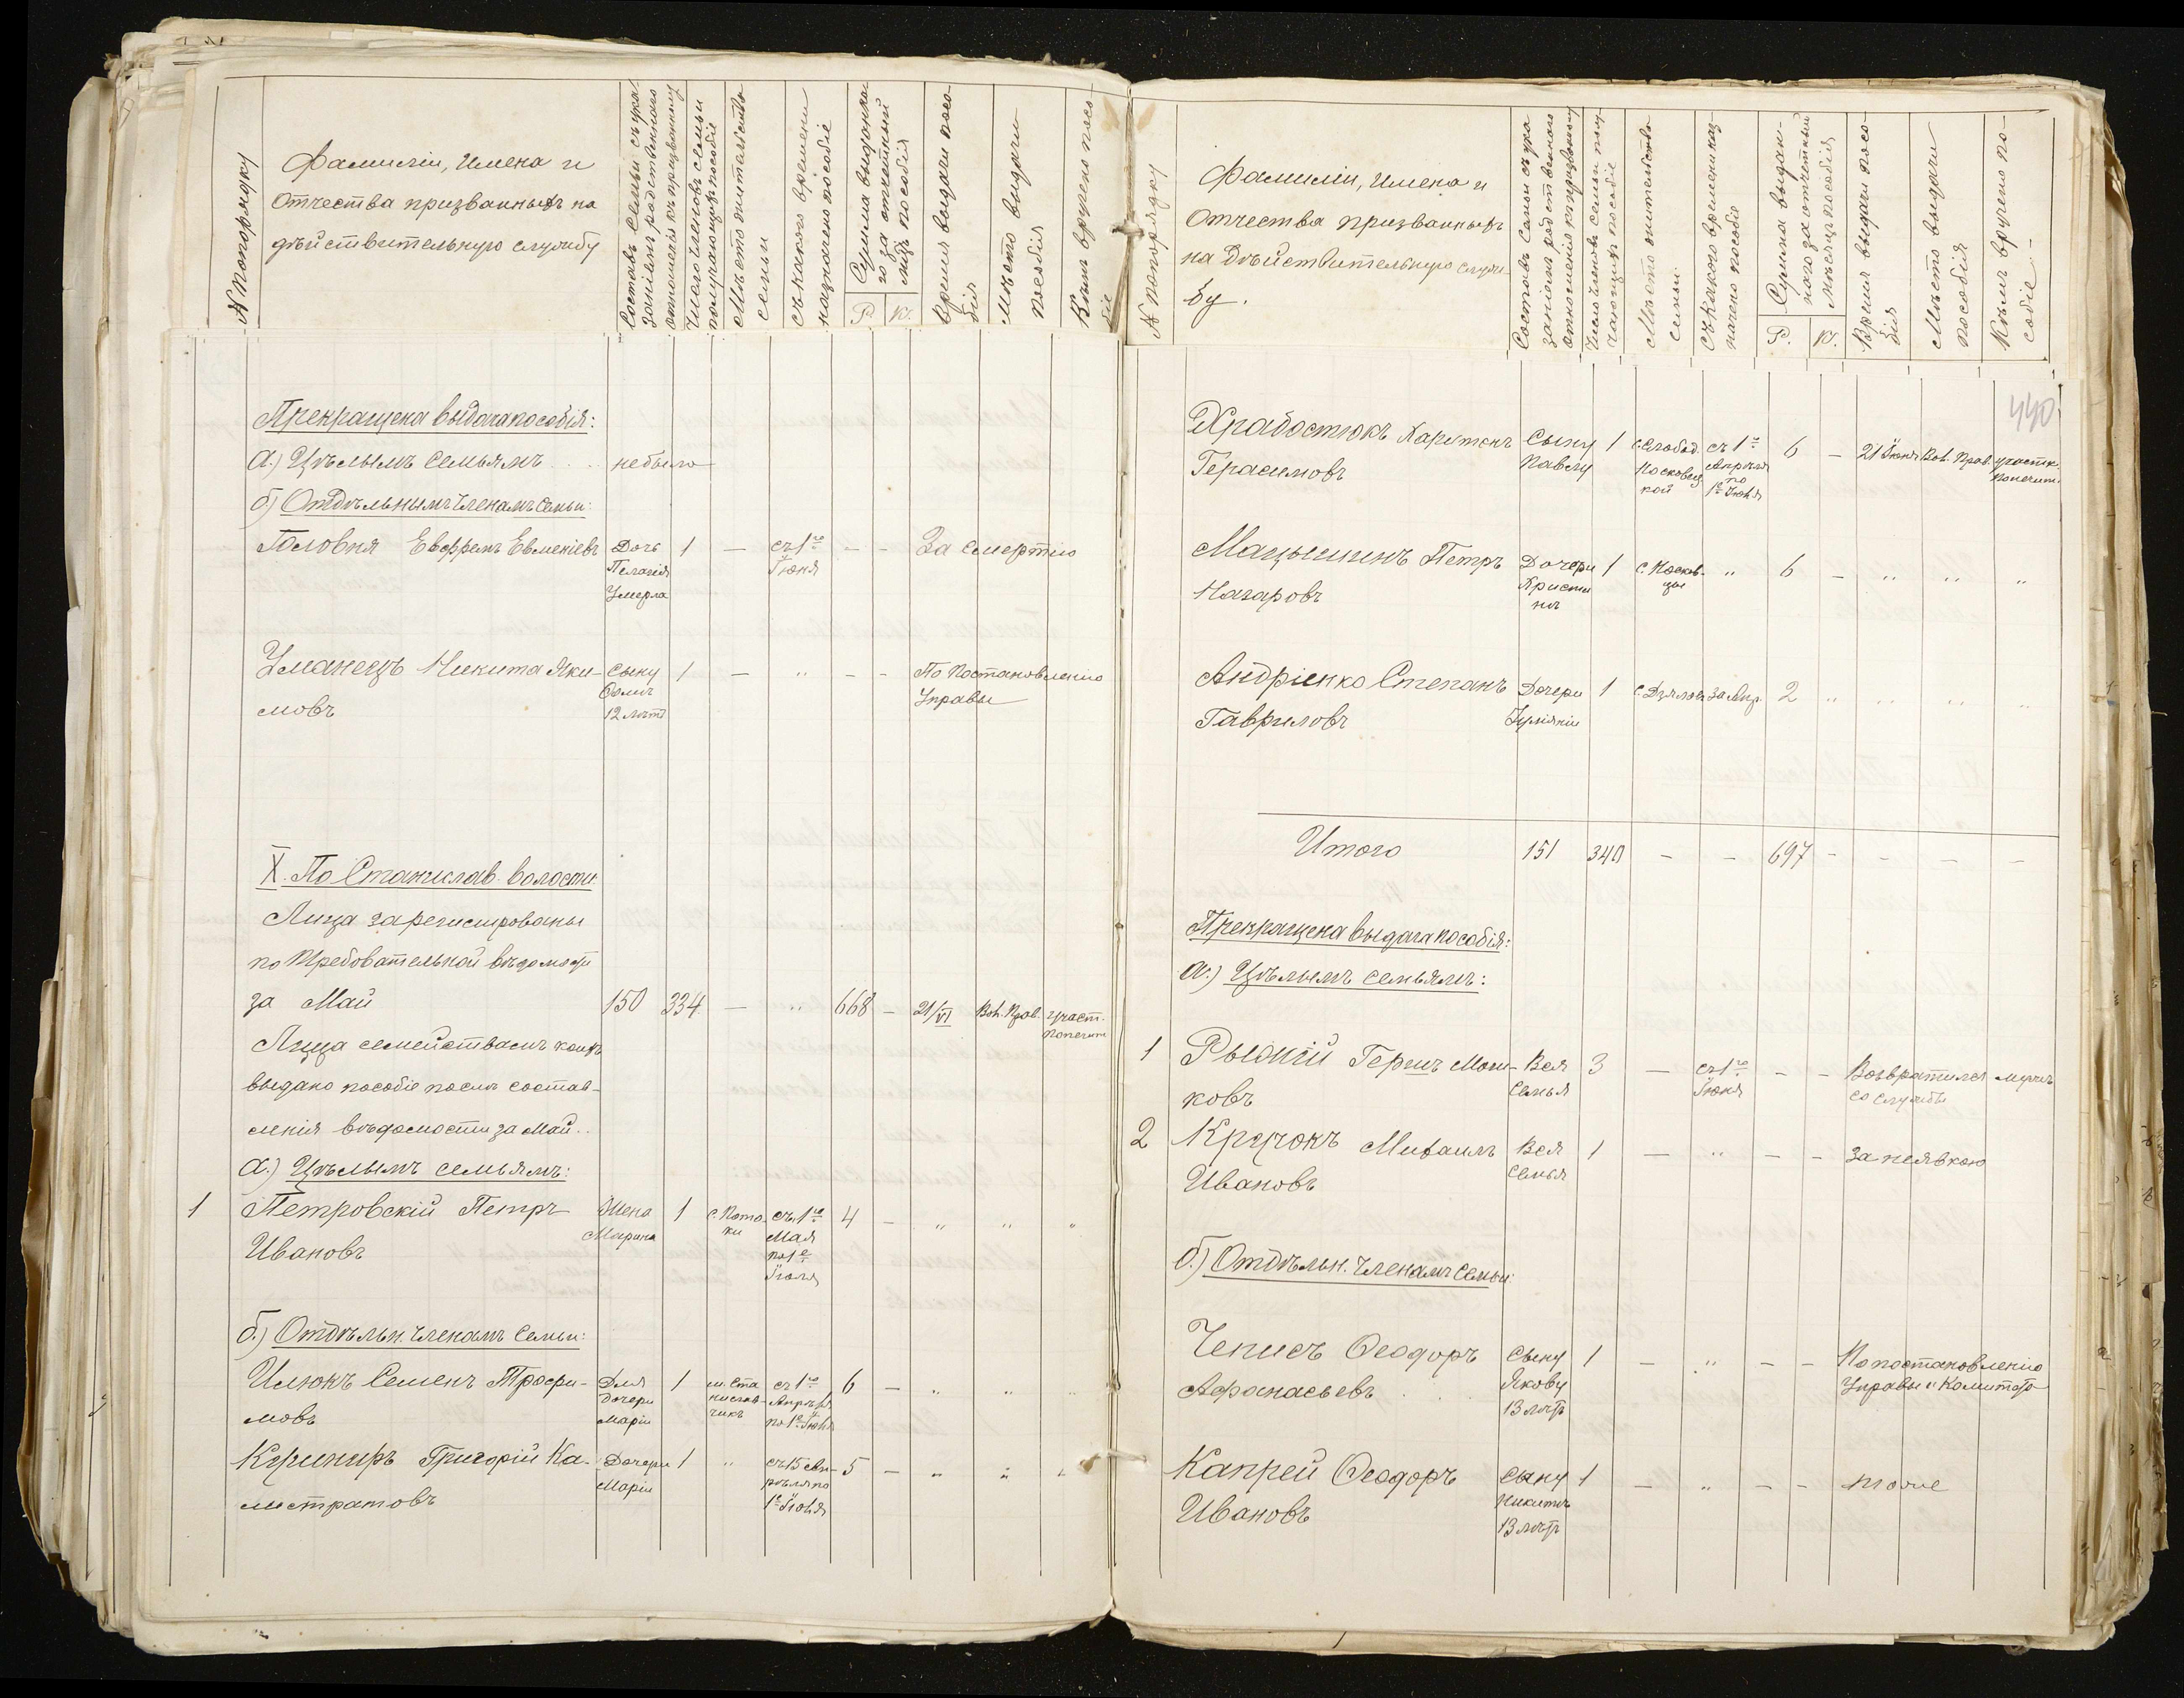 № по порядку
Фамиліи, Имена и
Отчества призванныхъ на
дѣйствительную службу
Составъ Семьи съ ука-
заніемъ родственнаго
отношенія къ призванному
Число членовъ семьи
получающихъ пособіе
Мѣсто жительства
семьи
Съ какого времени
назначено пособіе
Сумма выданна-
го за отчетный
мѣс. пособія
Р. К.
Время выдачи посо-
бія
Мѣсто выдачи
пособія
Кѣмъ вручено посо-
біе
Прекращена выдача пособія:
а.) Цѣлымъ семьямъ . . . небыло
б.) Отдѣльнымъ членамъ семьи:
Головня Ефремъ Евменіевъ Дочь 1 — съ 1го — — За смертію
Пелагія Іюня
Умерла
Уманецъ Никита Яки- Сыну 1 — " — — По постановленію
мовъ 12 лѣтъ Управы
X. По Станислав. волости.
Лица зарегистрованы
по требовательной вѣдомости
за Май 150 334 — " 668 — 21/VI Вол. Прав. участ.
попечит.
Лица семействамъ коихъ
выдано пособіе послѣ состав-
ленія вѣдомости за Май..
а.) Цѣлымъ семьямъ:
1 Петровскій Петръ Жена 1 с. Пото- съ 1го 4 — " " "
Ивановъ Марина ки Мая
по 1е
Іюля
б.) Отдѣльн. членамъ семьи:
Илюкъ Семенъ Трофи- Для 1 м. Ста съ 1го 6 — " " "
мовъ дочери нислав- Апрѣля
Маріи чикъ по 1е Іюля
Кушниръ Григорій Ка- Дочери 1 " съ 15 Ап- 5 — " " "
листратовъ Маріи рѣля по
1е Іюля
№ по порядку
Фамиліи, Имена и
Отчества призванныхъ
на Дѣйствительную служ-
бу.
Составъ Семьи съ ука
заніемъ родственнаго
отношенія къ призванному
Число членовъ семьи полу-
чающихъ пособіе
Мѣсто жительства
семьи
Съ какого времени наз-
начено пособіе
Сумма выдан-
наго за отчетный
мѣсяцъ пособія
Р. К.
Время выдачи посо-
бія
Мѣсто выдачи
пособія
Кѣмъ вручено по-
собіе
440
Храбостюкъ Харитонъ Сыну 1 с. Слобод. съ 1го 6 — 21 Іюня Вол. Прав. участк.
Герасимовъ Павлу Московец Апрѣля попечит.
кой по
1е Іюля
Мацышинъ Петръ Дочери 1 с. Москов- " 6 — " " "
Назаровъ Кристи цы
нѣ
Андріенко Степанъ Дочери 1 за Апр. 2 " " " "
Гавриловъ Іуліяніи
Итого 151 340 — — 697 — — — —
Прекращена выдача пособія:
а.) Цѣлымъ семьямъ:
1 Рыжій Гершъ Мош- Вся 3 — съ 1го — — Возвратился мужъ
ковъ Семья Іюня со службы
2 Кручокъ Михаилъ Вся 1 — " — — за неявкою
Ивановъ Семья
б.) Отдѣльн. членамъ семьи:
Чепись Ѳеодоръ Сыну 1 — " — — По постановленію
Афанасьевъ . . Якову Управы и Комитета
13 лѣтъ
Капрей Ѳеодоръ Сыну 1 — " — — тоже
Ивановъ Никитѣ
13 лѣтъ